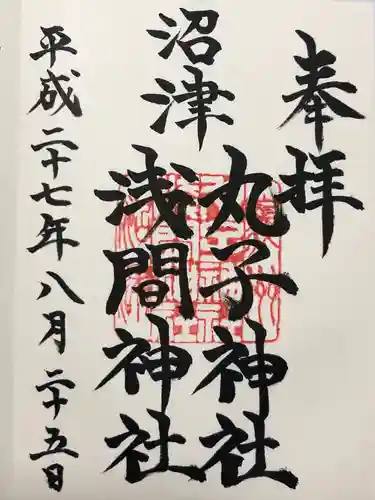 奉拝
丸子神社
沼津
浅間神社
平成二十七年八月二十五日